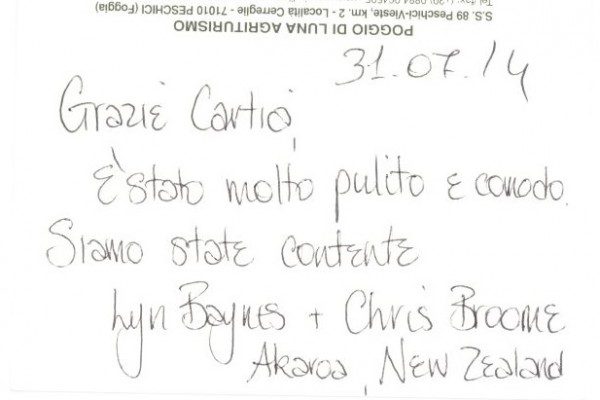 S.S. 89 Peschici-Vieste, km. 2 - Località Cerreglie - 71010 PESCHICI (Foggia)
POGGIO DI LUNA AGRITURISMO
31.07.14
Grazie
È stato molto pulito e comodo.
Siamo state contente
Lyn Baynes + Chris Broome
Akaroa, New Zealand